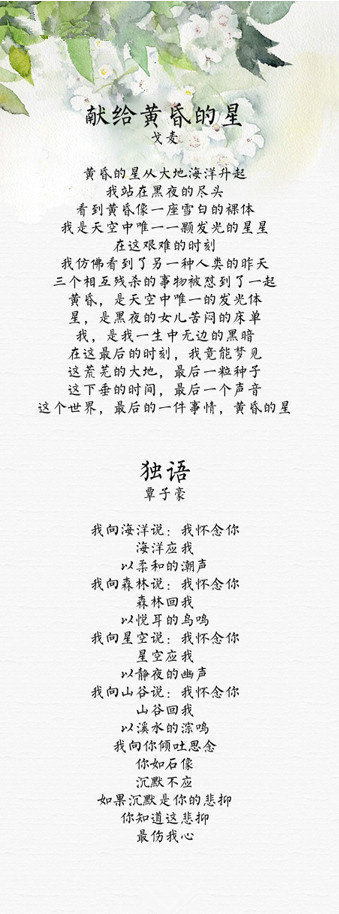 献给黄昏的星
戈麦
黄昏的星从大地海洋升起
我站在黑夜的尽头
看到黄昏像一座雪白的裸体
我是天空中唯一一颗发光的星星
在这艰难的时刻
我仿佛看到了另一种人类的昨天
三个相互残杀的事物被怼到了一起
黄昏，是天空中唯一的发光体
星，是黑夜的女儿苦闷的床单
我，是我一生中无边的黑暗
在这最后的时刻，我竟能梦见
这荒芜的大地，最后一粒种子
这下垂的时间，最后一个声音
这个世界，最后的一件事情，黄昏的星
独语
覃子豪
我向海洋说：我怀念你
海洋应我
以柔和的潮声
我向森林说：我怀念你
森林回我
以悦耳的鸟鸣
我向星空说：我怀念你
星空应我
以静夜的幽声
我向山谷说：我怀念你
山谷回我
以溪水的淙鸣
我向你倾吐思念
你如石像
沉默不应
如果沉默是你的悲抑
你知道这悲抑
最伤我心